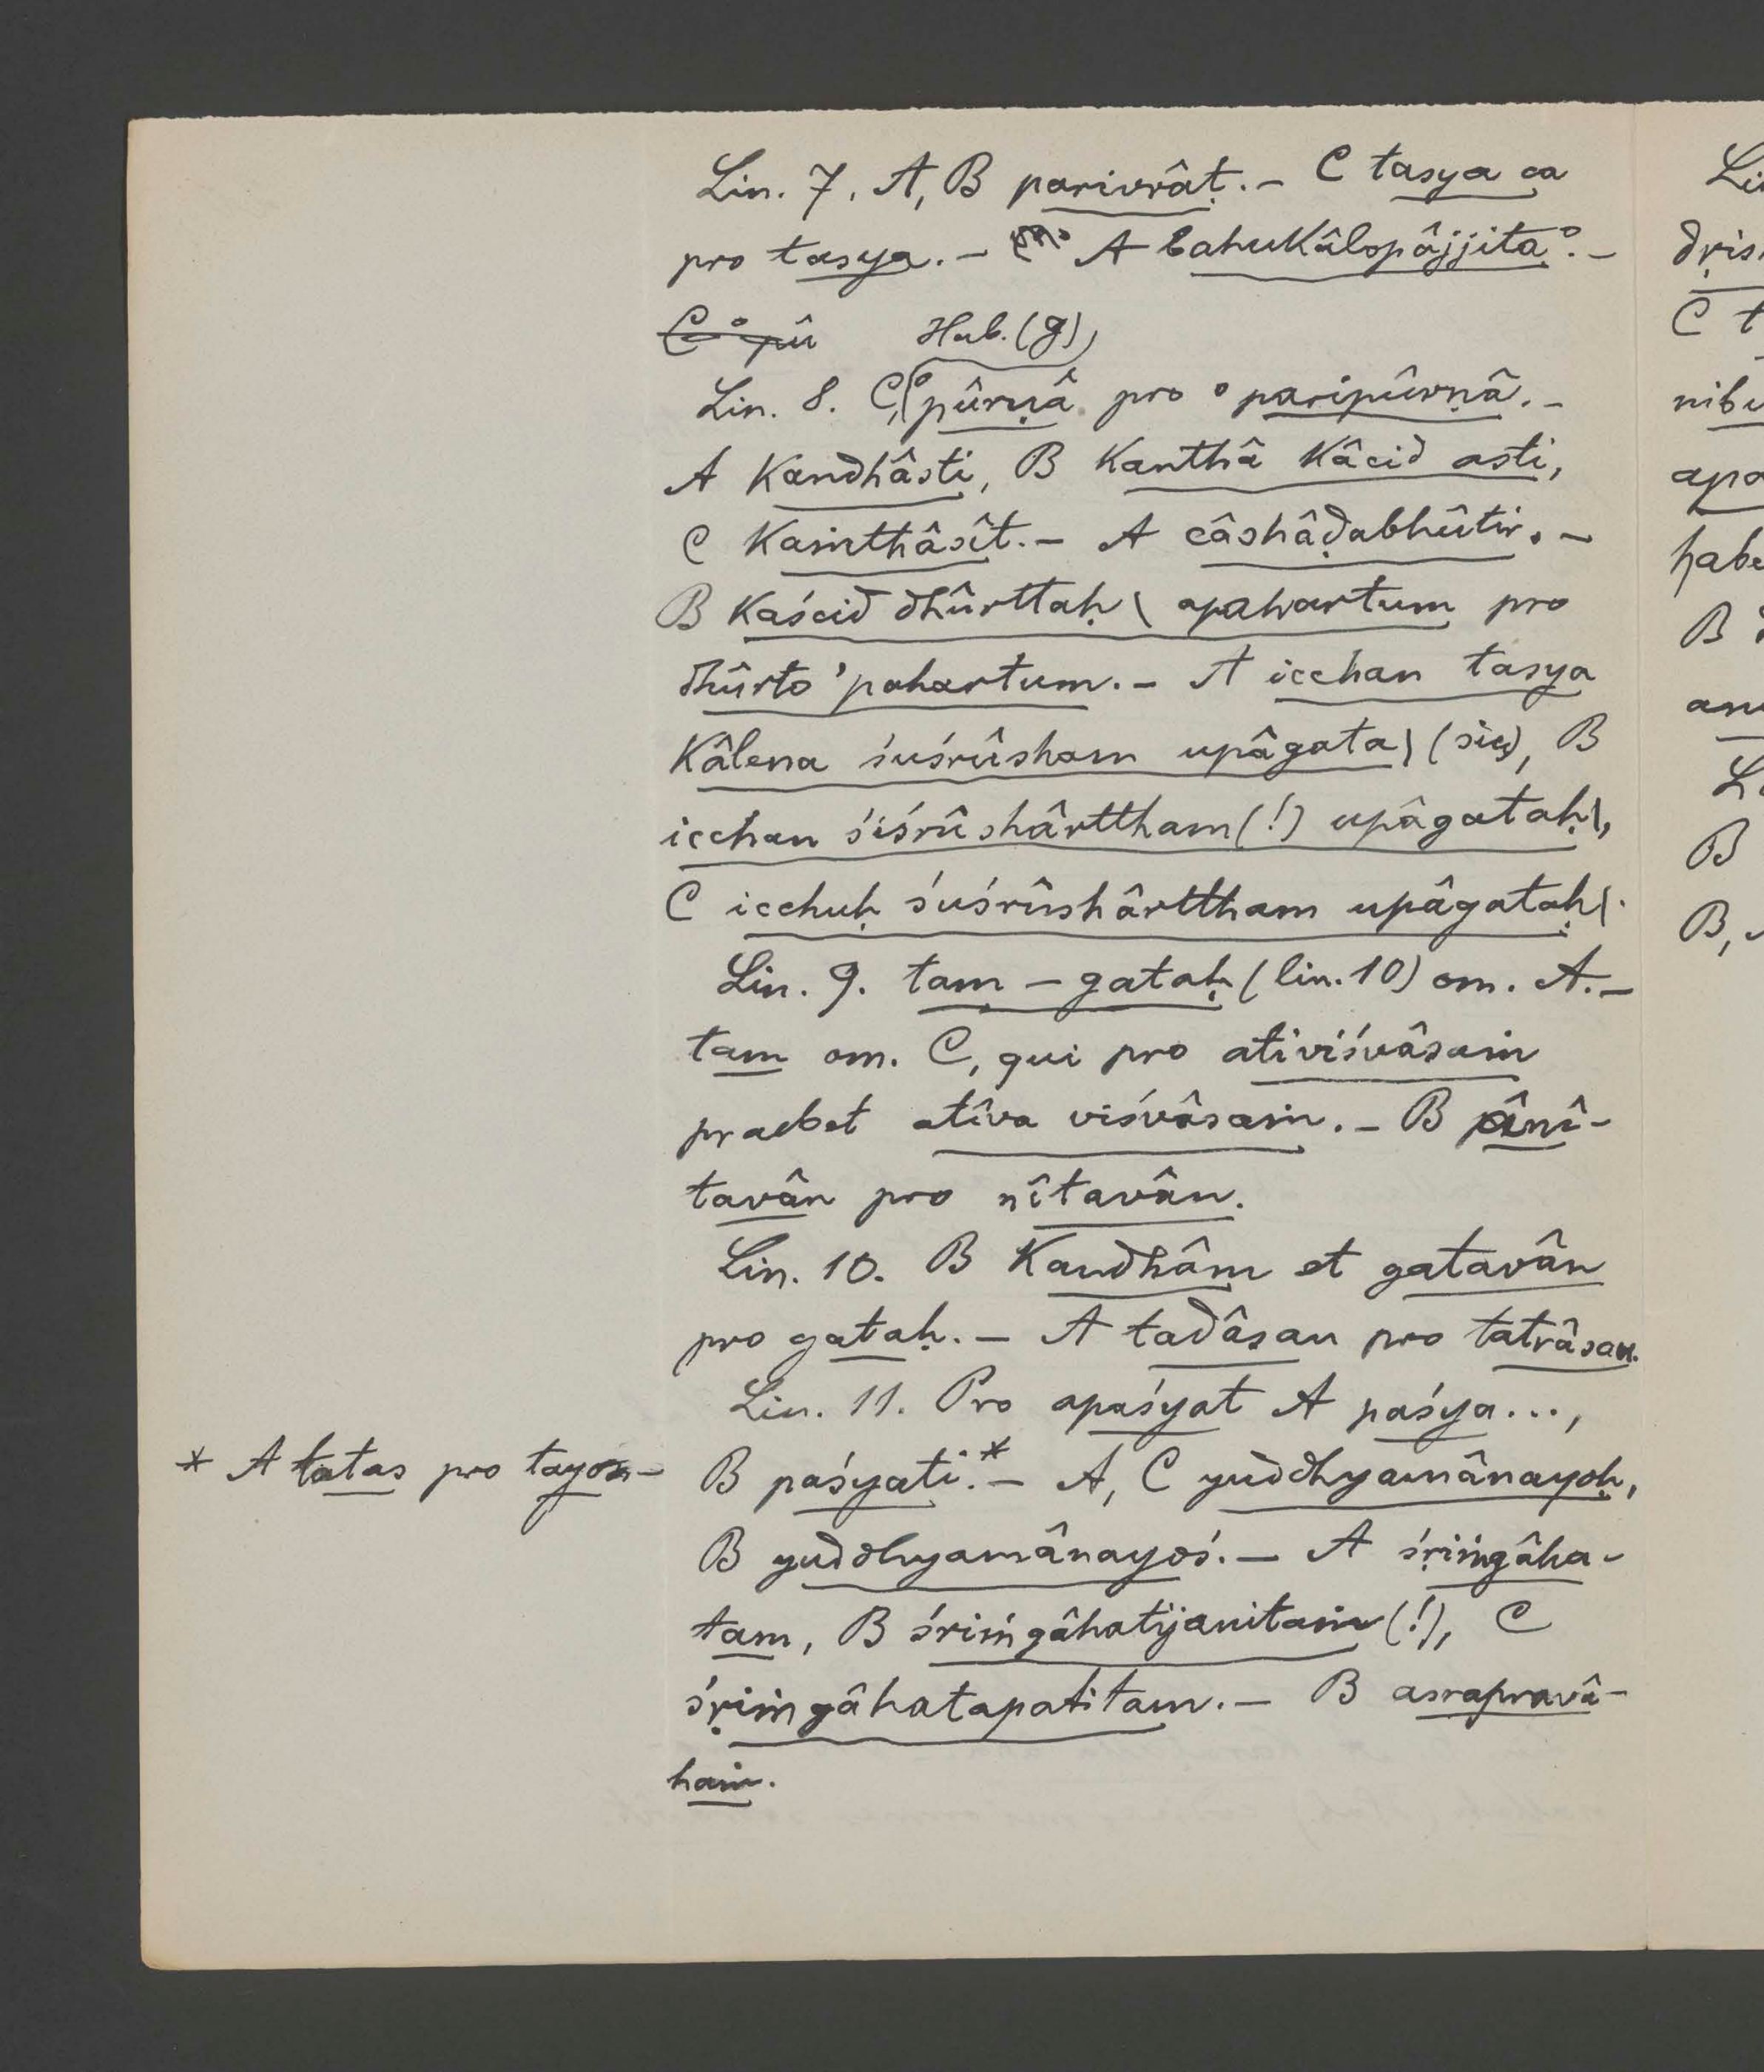 Lin. 7. A, B parivrâṭ. – C tasya ca
pro tasya. – A bahukâlopâjjita°. –
C °pû Hab. (g)
Lin. 8. C, °pûrṇâ pro °paripûrṇâ. –
A kandhâsti, B kanthâ kâcid asti,
C kaṁthâsît. – A câshâḍabhûtir. –
B kaścid dhûrttaḥ \ apahartum pro
dhûrto 'pahartum. – A icchan tasya
kâlena śuśrûsham upâgata \ (sic), B
icchan śiśrûshârttham (!) upâgataḥ \,
C icchuḥ śuśrûshârttham upâgataḥ \.
Lin. 9. tam – gataḥ (lin. 10) om. A. –
tam om. C, qui pro ativiśvâsaṁ
praebet atîva viśvâsaṁ. – B ânî-
tavân pro nîtavân.
Lin. 10. B kandhâm et gatavân
pro gataḥ. – A tadâsau pro tatrâsau.
Lin. 11. Pro apaśyat A paśya...,
B paśyati.* – A, C yuddhyamânayoḥ,
* A tatas pro tayos –
B yuddhyamânayoś. – A śṛiṁgâha-
tam, B śriṁgâhatijanitaṁ (!), C
śṛiṁgâhatapatitam. – B asrapravâ-
haṁ.
Li
dṛis
C t
nibu
apa
habe
B
anu
L
B
B,